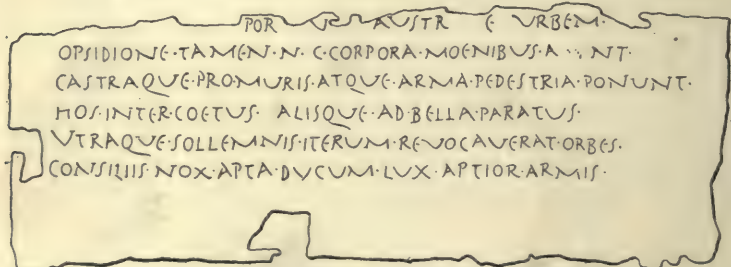 POR AUSTR E URBEM·
OPSIDIONE·TAMEN·N·C·CORPORA·MOENIBUS·A NT·
CASTRAQUE·PRO·MURIS·ATQUE·ARMA·PEDESTRIA·PONUNT·
HOS·INTER·COETUS·ALISQUE·AD·BELLA·PARATUS·
UTRAQUE·SOLLEMNIS·ITERUM·REVOCAVERAT·ORBES·
CONSILIIS·NOX·APTA·DUCUM·LUX·APTIOR·ARMIS·